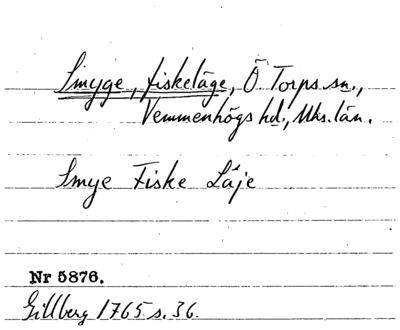 Smyge, fiskeläge, Ö Torps sn.,
Vemmenhögs hd., Mhs. län.
Smye Fiske Läje
Nr 5876.
Gillberg 1765 s. 36.